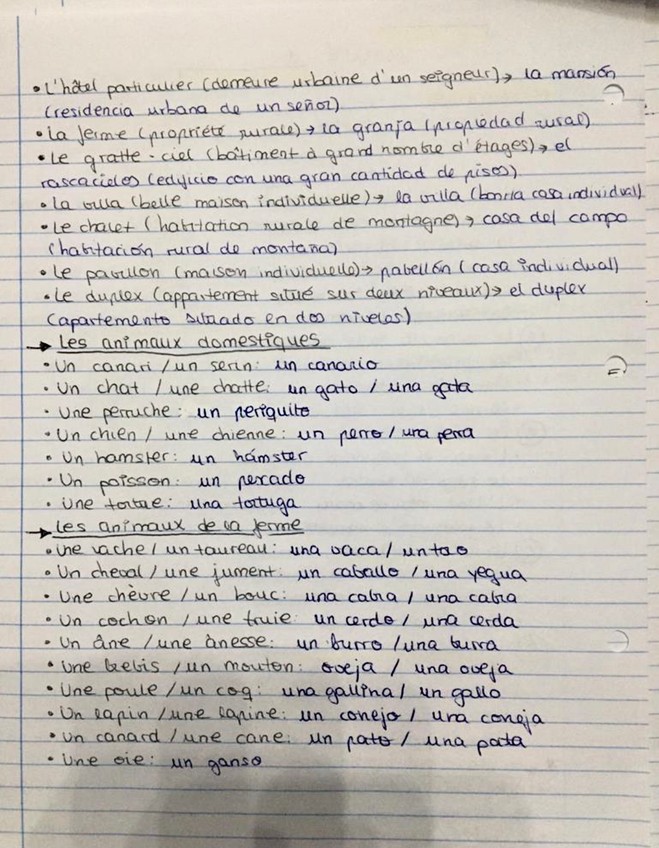 • L'hôtel particulier (demeure urbaine d'un seigneur)→ la mansión
(residencia urbana de un señor)
• La ferme (propriété rurale)→ la granja (propiedad rural)
• Le gratte-ciel (bâtiment à grand nombre d'étages)→ el
rascacielos (edificio con una gran cantidad de pisos).
• La villa (belle maison individuelle)→ la villa (bonita casa individual)
• Le chalet (habitation rurale de montagne)→ casa del campo
(habitación rural de montaña)
• Le pavillon (maison individuelle)→ pabellón (casa individual)
• Le duplex (appartement situé sur deux niveaux)→ el duplex
(apartemento situado en dos niveles)
→ Les animaux domestiques
• Un canari / un serin: un canario
• Un chat / une chatte: un gato / una gata
• Une perruche: un periquito
• Un chien / une chienne: un perro / una perra
• Un hamster: un hámster
• Un poisson: un pexado
• Une tortue: una tortuga
→ Les animaux de la ferme
• Une vache / un taureau: una vaca / un toro
• Un cheval / une jument: un caballo / una yegua
• Une chèvre / un bouc: una cabra / una cabra
• Un cochon / une truie: un cerdo / una cerda
• Un âne / une ânesse: un burro / una burra
• Une brebis / un mouton: oveja / una oveja
• Une poule / un coq: una gallina / un gallo
• Un lapin / une lapine: un conejo / una coneja
• Un canard / une cane: un pato / una pata
• Une oie: un ganso